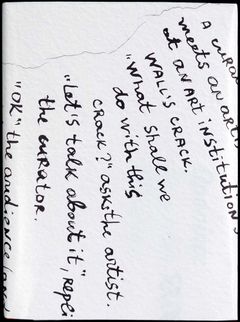 A CURA
meets an arti
at an ART INSTITUTION
WALL'S CRACK.
"What shall we
do with this
CRACK?" asks the artist.
"Let's talk about it," repli
the curator.
"OK" the audience